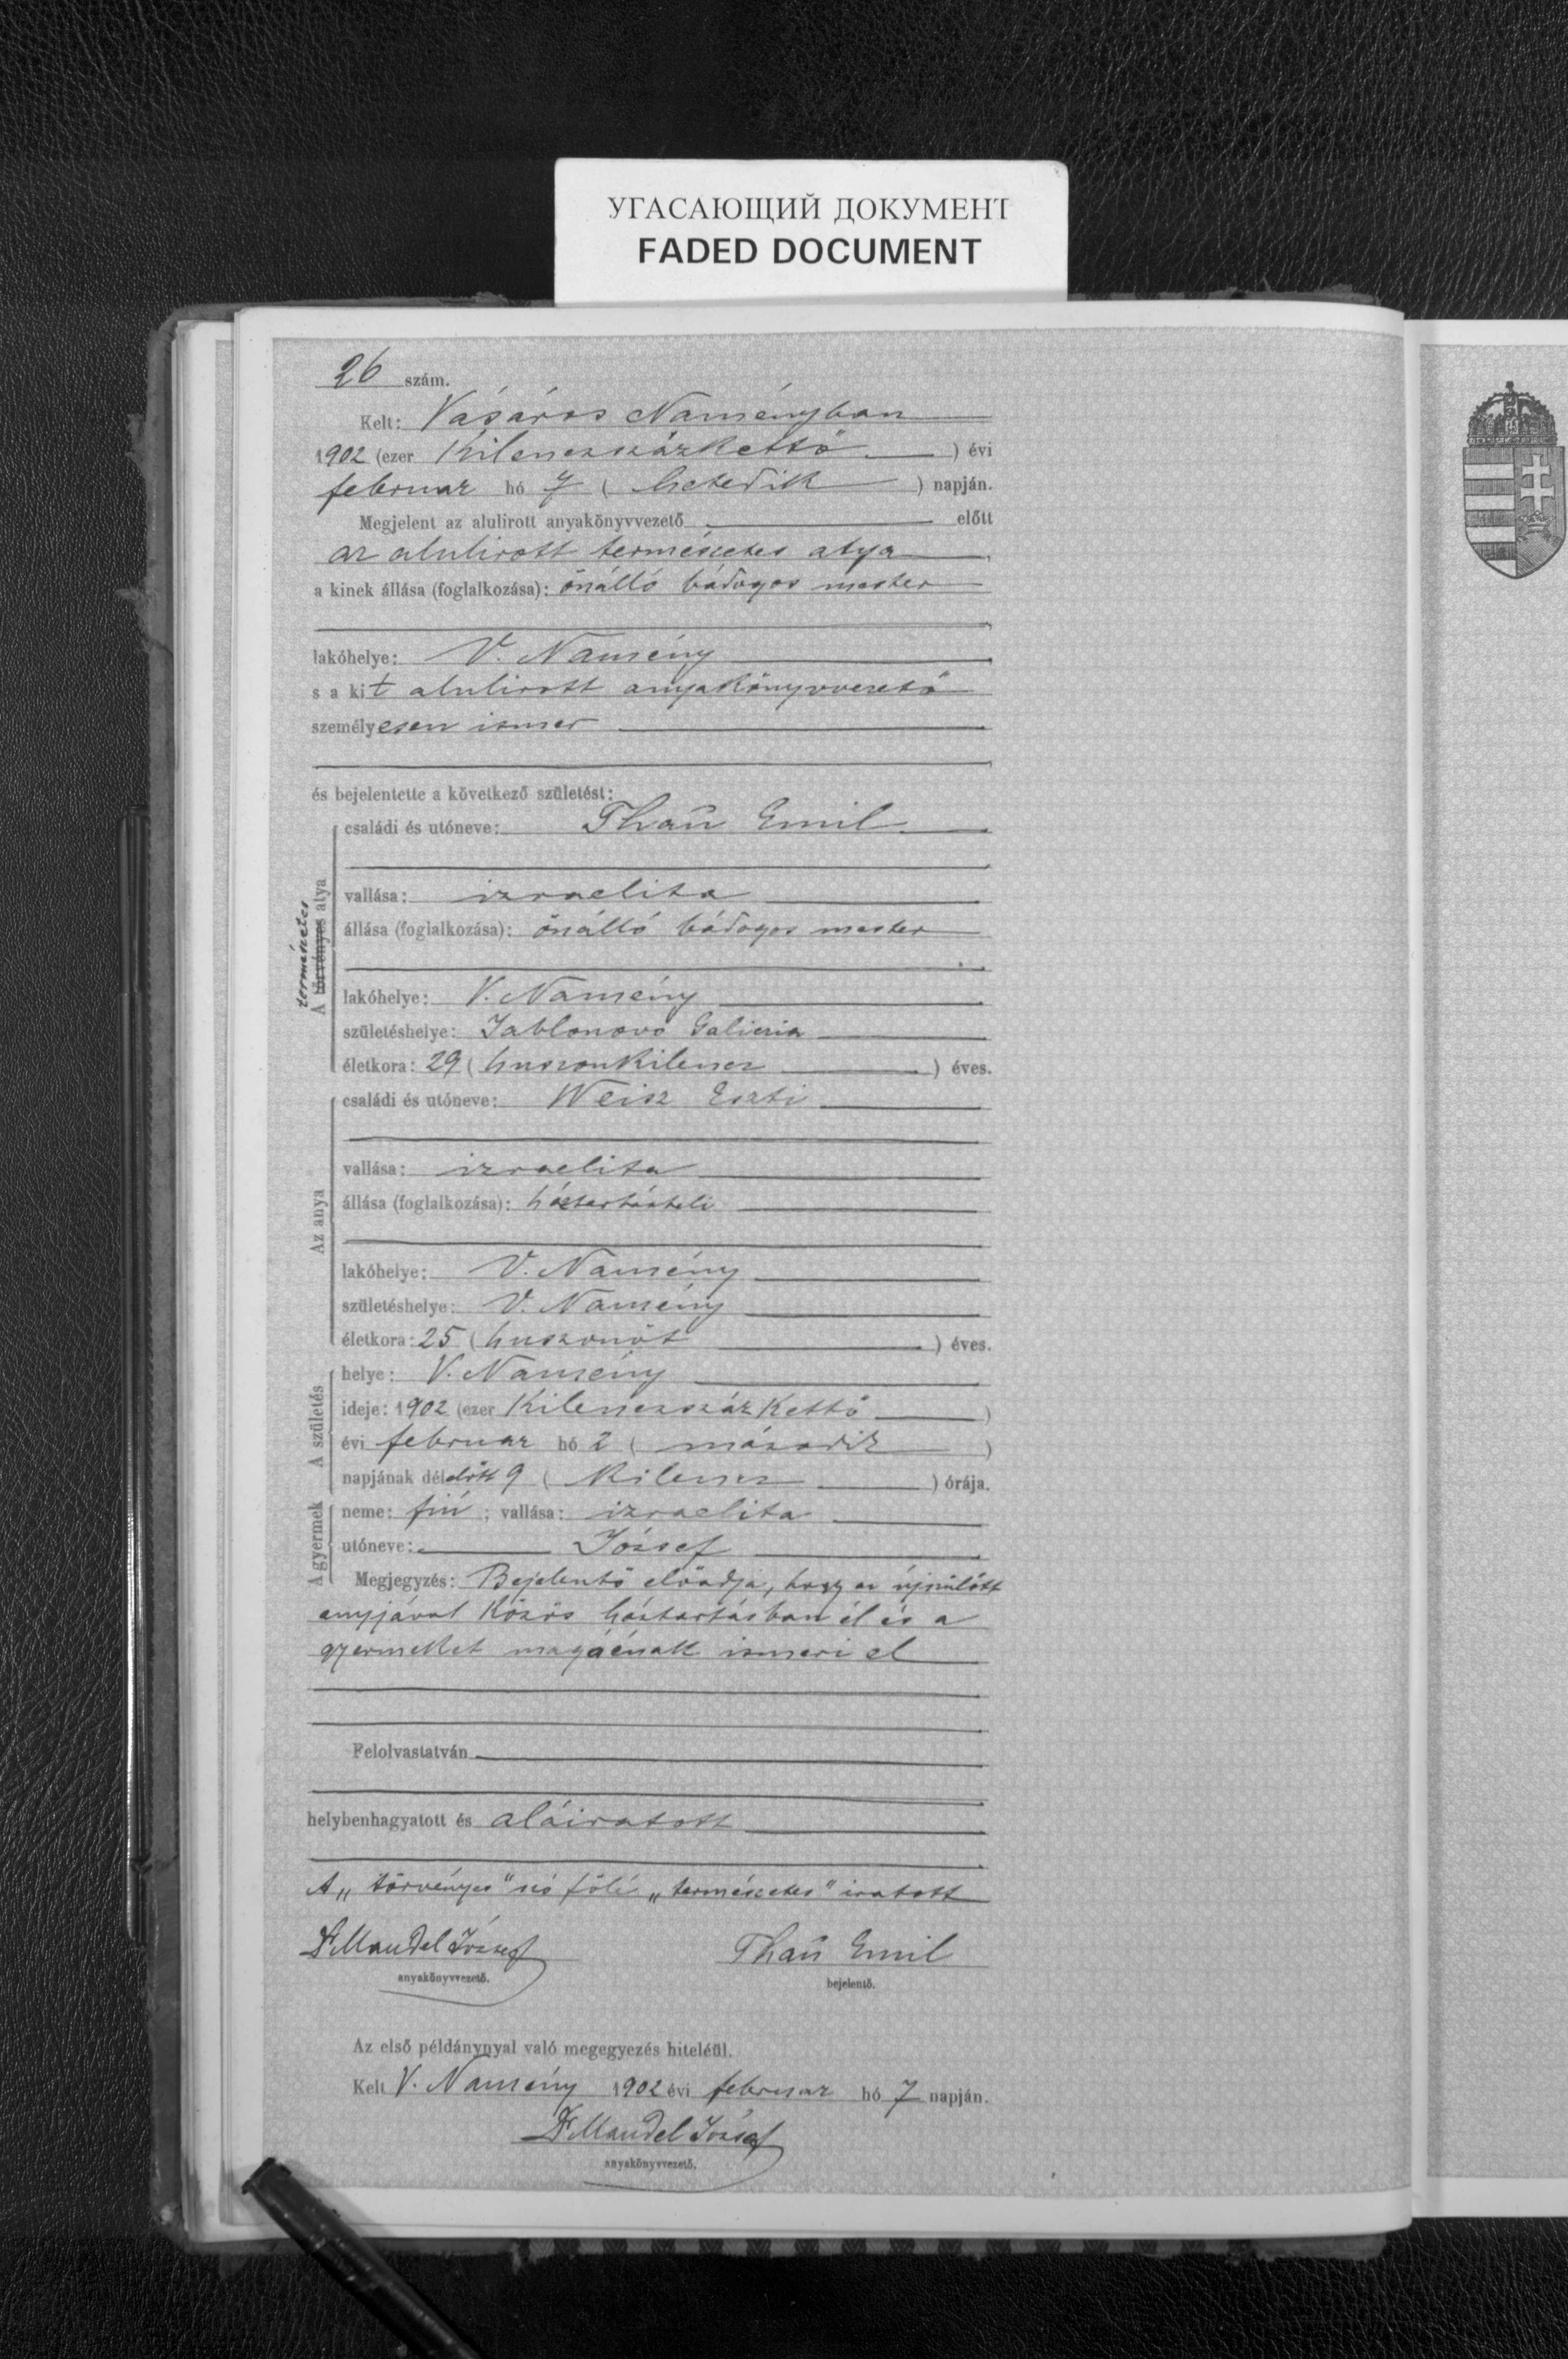 УГАСАЮЩИЙ ДОКУМЕНТ
FADED DOCUMENT
26 szám.
Kelt: Vásáros Naményban
1902 (ezer Kilenczszázkettö ) évi
februar hó 7 ( hetedik ) napján.
Megjelent az alulirott anyakönyvvezető előtt
az alulirott természetes atya
a kinek állása (foglalkozása): önálló bádogos mester
lakóhelye: V. Namény
s a kit alulirott anyakönyvvezető
személyesen ismer
és bejelentette a következő születést:
természetes
A törvényes atya
családi és utóneve: Thaŭ Emil
vallása: izraelita
állása (foglalkozása): önálló bádogos mester
lakóhelye: V. Namény
születéshelye: Jablonovo Galiczia
életkora: 29 ( huszonkilencz ) éves.
Az anya
családi és utóneve: Weisz Eszti
vallása: izraelita
állása (foglalkozása): háztartásbeli
lakóhelye: V. Namény
születéshelye: V. Namény
életkora: 25 ( huszonöt ) éves.
A születés
helye: V. Namény
ideje: 1902 (ezer Kilenczszáz Kettö )
évi februar hó 2 ( második )
napjának délelött 9 ( Kilencz ) órája.
A gyermek
neme: fiú ; vallása: izraelita
utóneve: József
Megjegyzés: Bejelentő előadja, hogy az újszülött
anyjával közös háztartásban él és a
gyermeket magáénak ismeri el
Felolvastatván
helybenhagyatott és aláiratott
A „törvényes" szó fölé „természetes" iratott
Dr Mandel József
anyakönyvvezető.
Thaŭ Emil
bejelentő.
Az első példánynyal való megegyezés hiteléül.
Kelt V. Namény 1902 évi februar hó 7 napján.
Dr Mandel József
anyakönyvvezető.